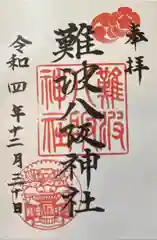 奉拝
難波八阪神社
難波
神社
令和四年十二月三十日